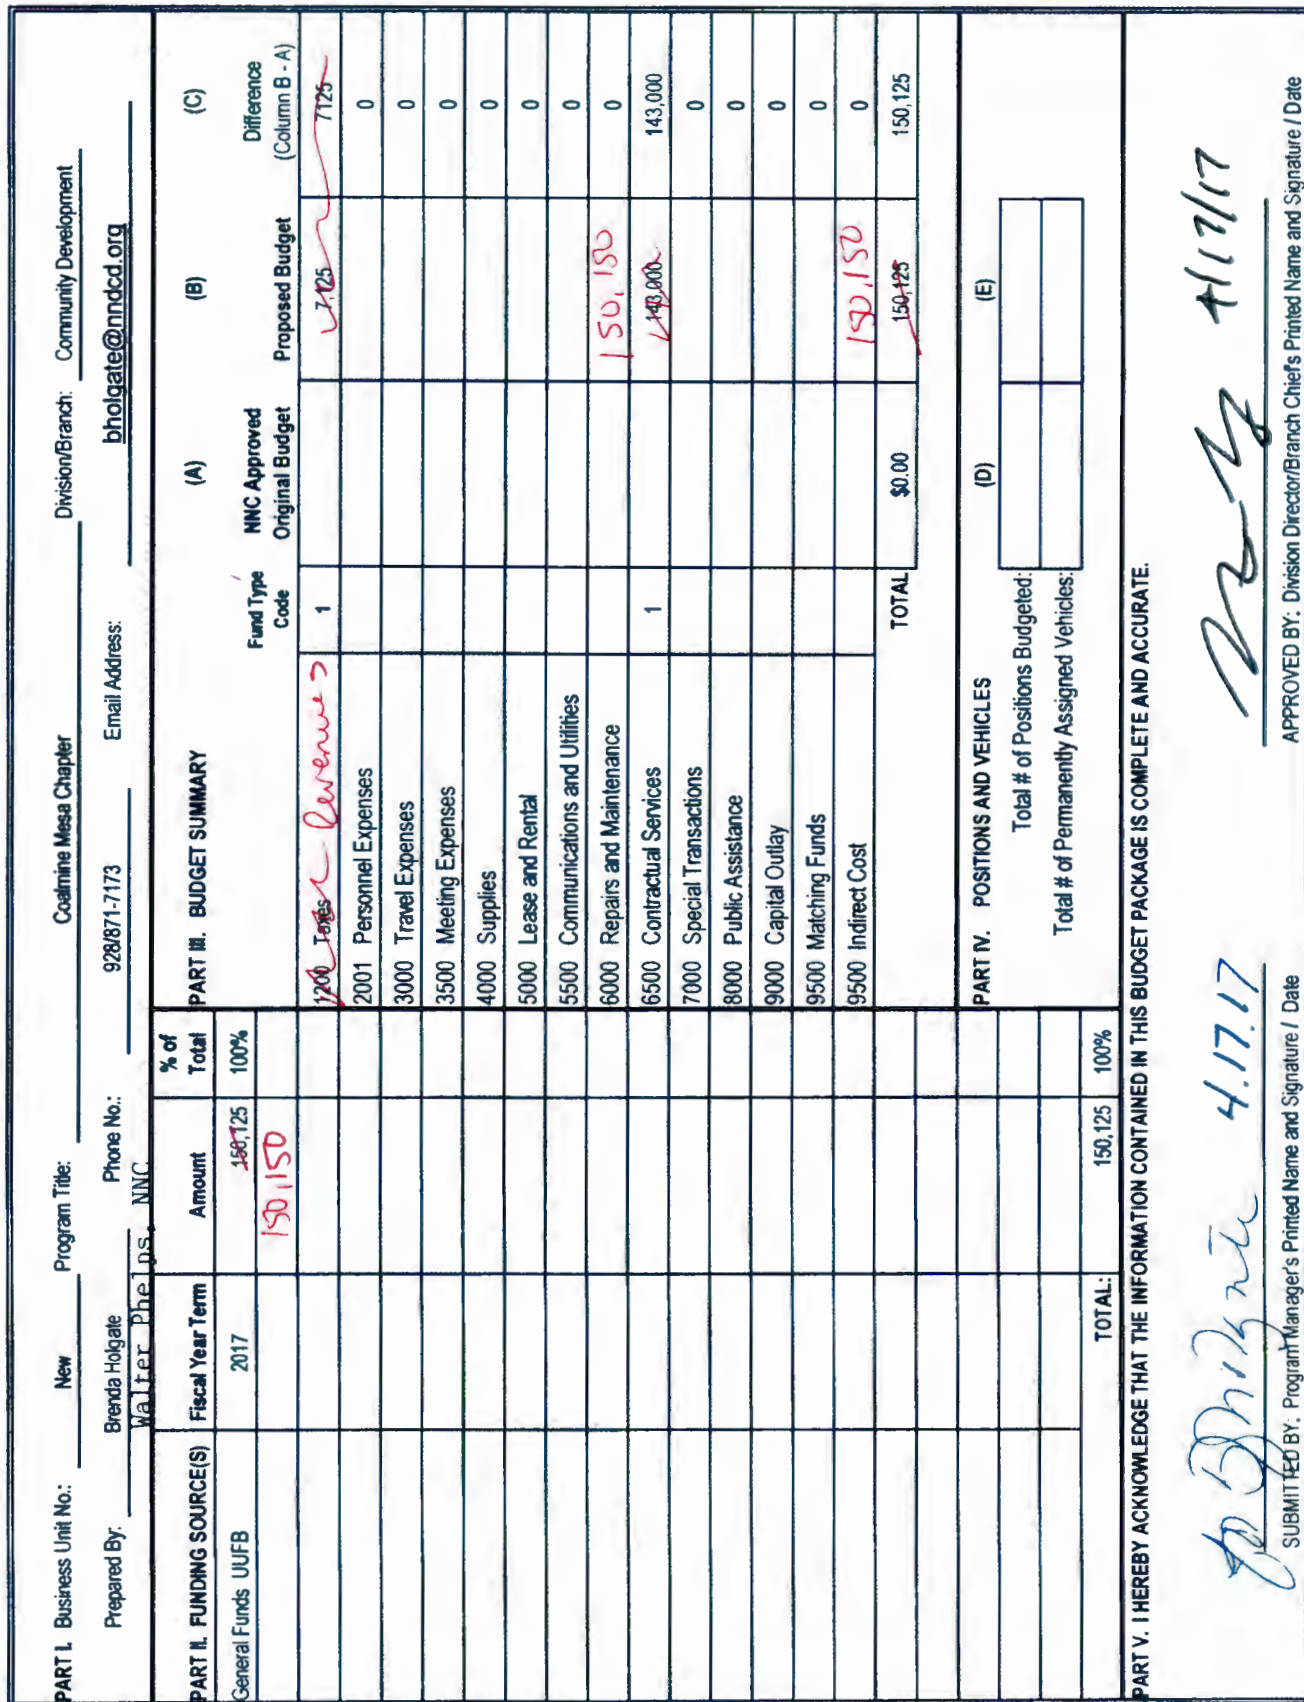 PART I. Business Unit No.: New Program Title: Coalmine Mesa Chapter Division/Branch: Community Development
Prepared By: Brenda Holgate Phone No.: 928/871-7173 Email Address: bholgate@nndcd.org
Walter Phelps, NNC
PART II. FUNDING SOURCE(S) Fiscal Year Term Amount % of Total
General Funds UUFB 2017 150,125 100%
150,150
TOTAL: 150,125 100%
PART III. BUDGET SUMMARY Fund Type Code (A) NNC Approved Original Budget (B) Proposed Budget (C) Difference (Column B - A)
1200 Taxes Revenues 1 7,125 7125
2001 Personnel Expenses 0
3000 Travel Expenses 0
3500 Meeting Expenses 0
4000 Supplies 0
5000 Lease and Rental 0
5500 Communications and Utilities 0
6000 Repairs and Maintenance 150,150 0
6500 Contractual Services 1 143,000 143,000
7000 Special Transactions 0
8000 Public Assistance 0
9000 Capital Outlay 0
9500 Matching Funds 0
9500 Indirect Cost 150,150 0
TOTAL $0.00 150,125 150,125
PART IV. POSITIONS AND VEHICLES (D) (E)
Total # of Positions Budgeted:
Total # of Permanently Assigned Vehicles:
PART V. I HEREBY ACKNOWLEDGE THAT THE INFORMATION CONTAINED IN THIS BUDGET PACKAGE IS COMPLETE AND ACCURATE.
4.17.17 4/17/17
SUBMITTED BY: Program Manager's Printed Name and Signature / Date APPROVED BY: Division Director/Branch Chief's Printed Name and Signature / Date